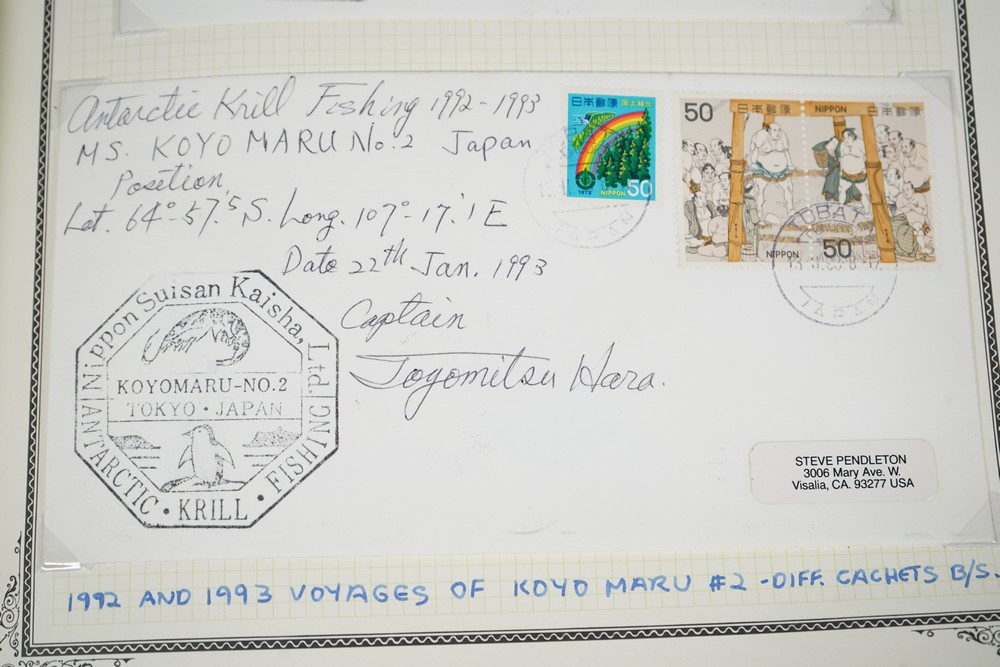 Antarctic Krill Fishing 1992-1993
MS. KOYO MARU No.2 Japan
Position
Lat. 64°-57.'5 S. Long. 107°-17.'1 E
Date 22th Jan. 1993
Captain
Toyomitsu Hara.
日本郵便 国土緑化
1978 NIPPON 50
50 日本郵便
NIPPON
NIPPON 日本郵便
50
JAPAN
OBATA
JAPAN
Nippon Suisan Kaisha, Ltd.
KOYOMARU-NO.2
TOKYO・JAPAN
ANTARCTIC・KRILL・FISHING
STEVE PENDLETON
3006 Mary Ave. W.
Visalia, CA. 93277 USA
1992 AND 1993 VOYAGES OF KOYO MARU #2 -DIFF. CACHETS B/S.